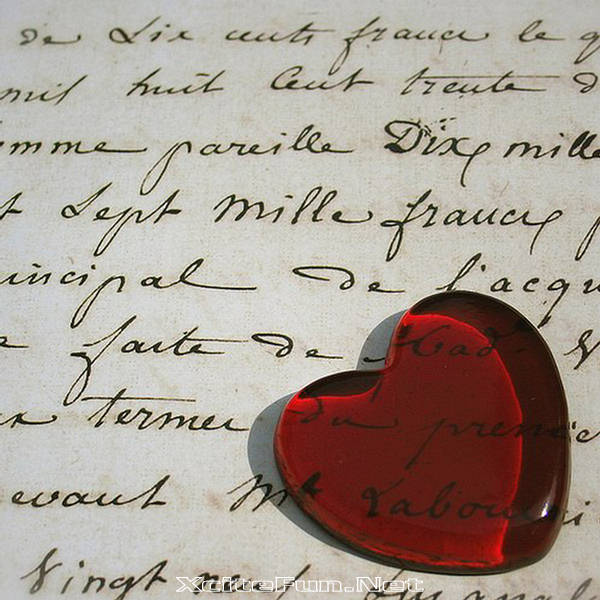 de Six cents francs le
mil huit Cent trente
pareille Dix mille
Sept Mille francs
de l'acqu
faite de Mad.
termes du premie
evant Mr
Vingt neuf
XciteFun.Net